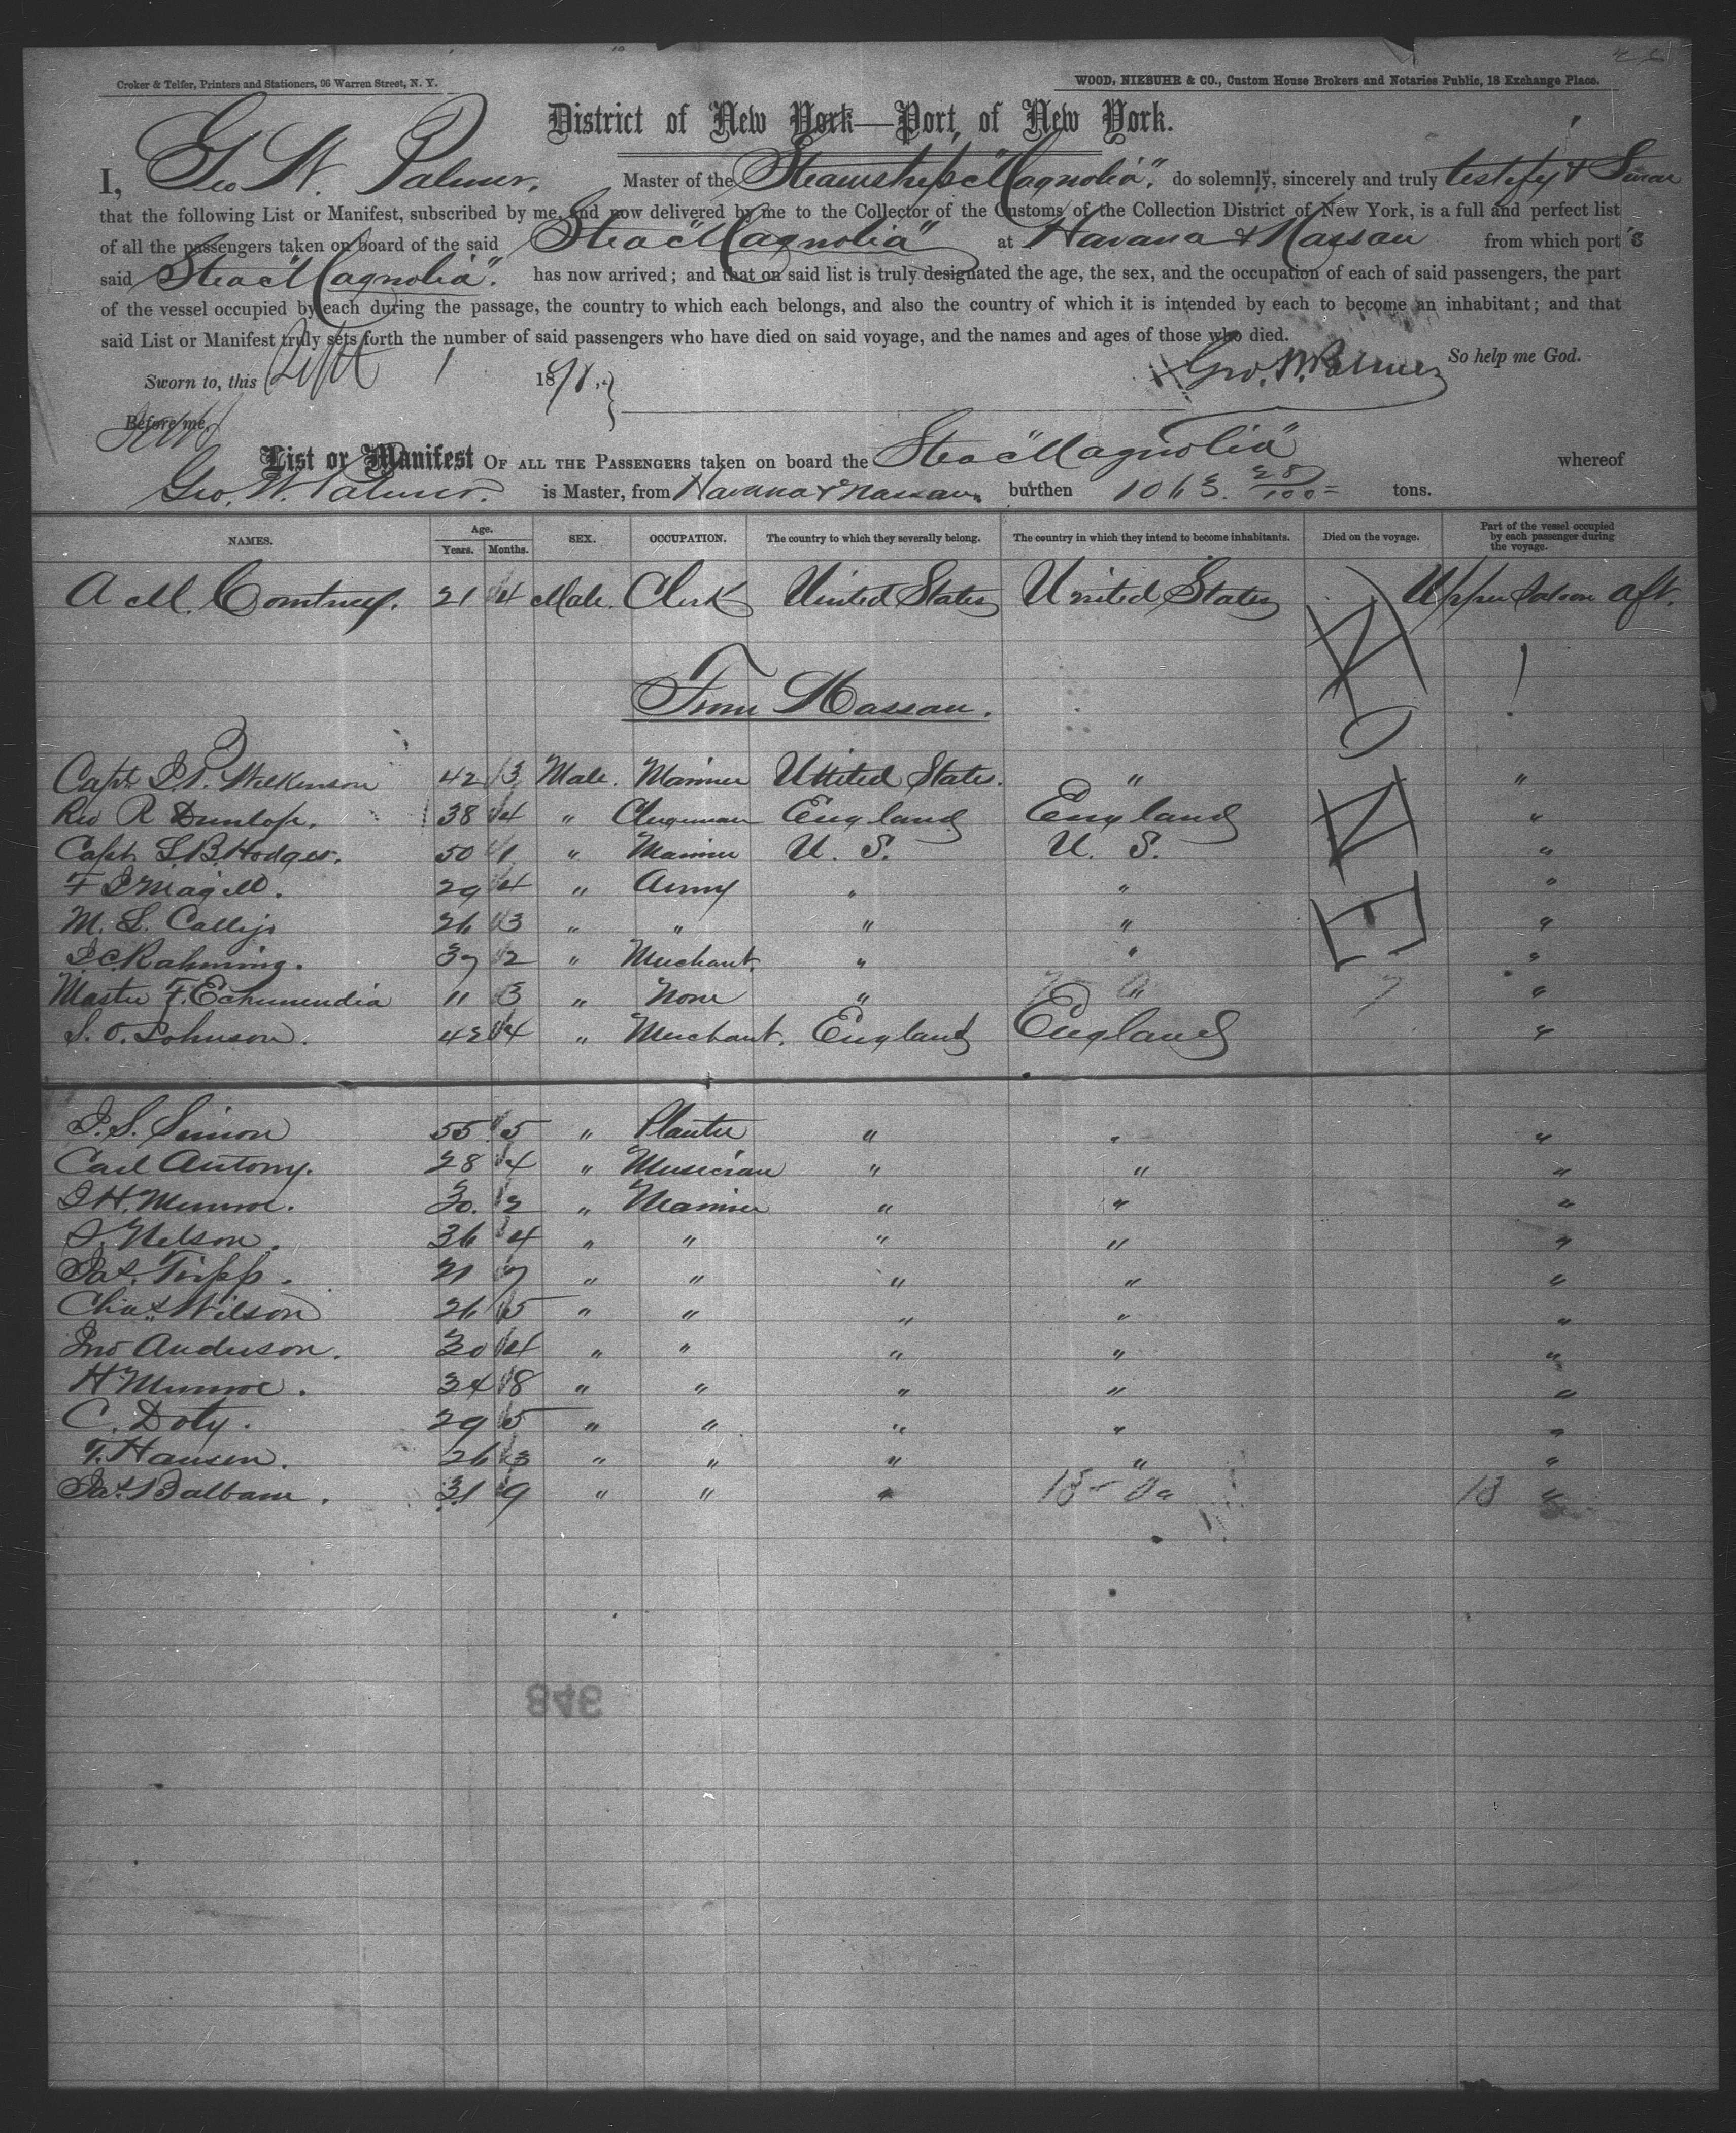 Croker & Telfer, Printers and Stationers, 96 Warren Street, N. Y.
WOOD, NIEBUHR & CO., Custom House Brokers and Notaries Public, 18 Exchange Place.
District of New York—Port of New York.
I, Geo W. Palmer, Master of the Steamship "Magnolia", do solemnly, sincerely and truly testify & Swear
that the following List or Manifest, subscribed by me, and now delivered by me to the Collector of the Customs of the Collection District of New York, is a full and perfect list
of all the passengers taken on board of the said "Magnolia" at Havana & Nassau from which port s
said "Magnolia". has now arrived; and that on said list is truly designated the age, the sex, and the occupation of each of said passengers, the part
of the vessel occupied by each during the passage, the country to which each belongs, and also the country of which it is intended by each to become an inhabitant; and that
said List or Manifest truly sets forth the number of said passengers who have died on said voyage, and the names and ages of those who died.
So help me God.
Sworn to, this Sept 1 1891. Geo. W. Palmer
Before me,
List or Manifest OF ALL THE PASSENGERS taken on board the "Magnolia" whereof
Geo. W. Palmer. is Master, from Havana & Nassau. burthen 1063. 28/100 = tons.
NAMES. Age. Years. Months. SEX. OCCUPATION. The country to which they severally belong. The country in which they intend to become inhabitants. Died on the voyage. Part of the vessel occupied by each passenger during the voyage.
A M. 21 4 Male. Clerk United States United States Upper Saloon aft.
From Nassau.
Capt. Wilkinson 42 3 Male. Mariner United States. " "
Rev R Dunlop. 38 4 " Clergyman England England "
Capt. S. B. Hodges. 50 1 " Mariner U. S. U. S. "
F J Magill. 29 4 " Army " " "
M. L. 26 3 " " " " "
J. C. Rahming. 37 2 " Merchant. " " "
Master F. Echemendia 11 3 " None " " "
S. O. Johnson. 42 4 " Merchant. England England "
J. S. Simon 55 5 " Planter " " "
Carl Antony. 28 4 " Musician " " "
J H. Munroe. 30. 2 " Mariner " " "
J. Nelson. 36 4 " " " " "
Jas. Tripp. 21 7 " " " " "
Chas. Wilson 26 5 " " " " "
Jno Anderson. 30 4 " " " " "
H Munroe. 34 8 " " " " "
C. Doty. 29 5 " " " " "
T. Hansen. 26 3 " " " " "
Jas. 31 9 " " " 13 "
846